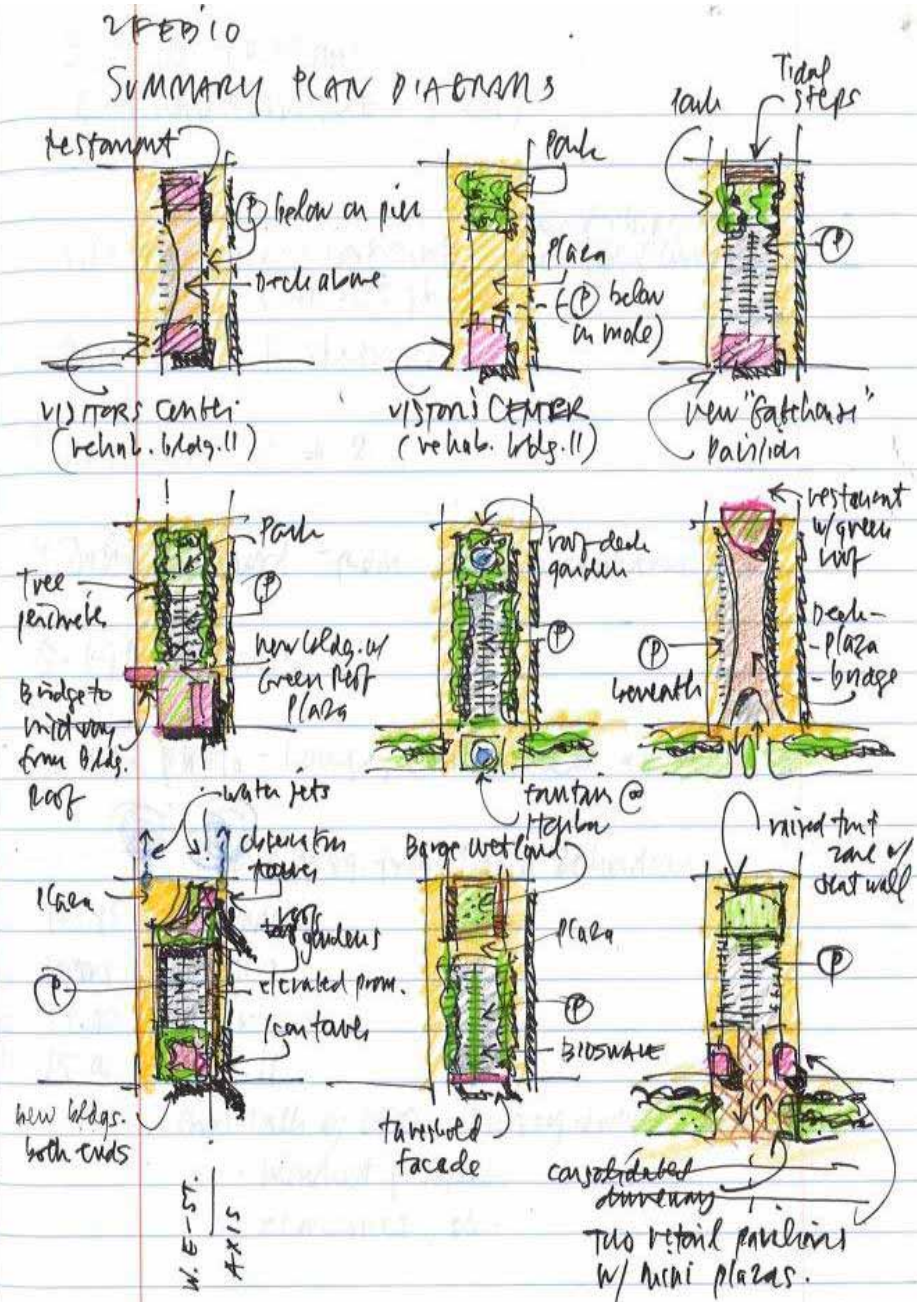 2 FEB 10
SUMMARY PLAN DIAGRAMS
restaurant
Ⓟ below on pier
Deck above
VISITORS Center
(rehab. bldg. 11)
Park
Plaza
(Ⓟ below
on mole)
VISITORS CENTER
(rehab. bldg. 11)
Park
Tidal
steps
Ⓟ
new "Gatehouse"
Pavilion
Tree
perimeter
Park
Ⓟ
new bldg. w/
Green Roof
Plaza
Bridge to
midway
from Bldg.
Roof
roof deck
garden
Ⓟ
fountain @
Harbor
restaurant
w/ green
roof
Deck-
-plaza
-bridge
Ⓟ
beneath
water jets
Plaza
observation
towers
roof
gardens
elevated prom.
Ⓟ
new bldgs.
both ends
W. E-ST.
AXIS
Barge wetland
Plaza
Ⓟ
BIOSWALE
threshold
facade
raised turf
zone w/
seat wall
Ⓟ
consolidated
driveway
TWO retail pavilions
w/ mini plazas.